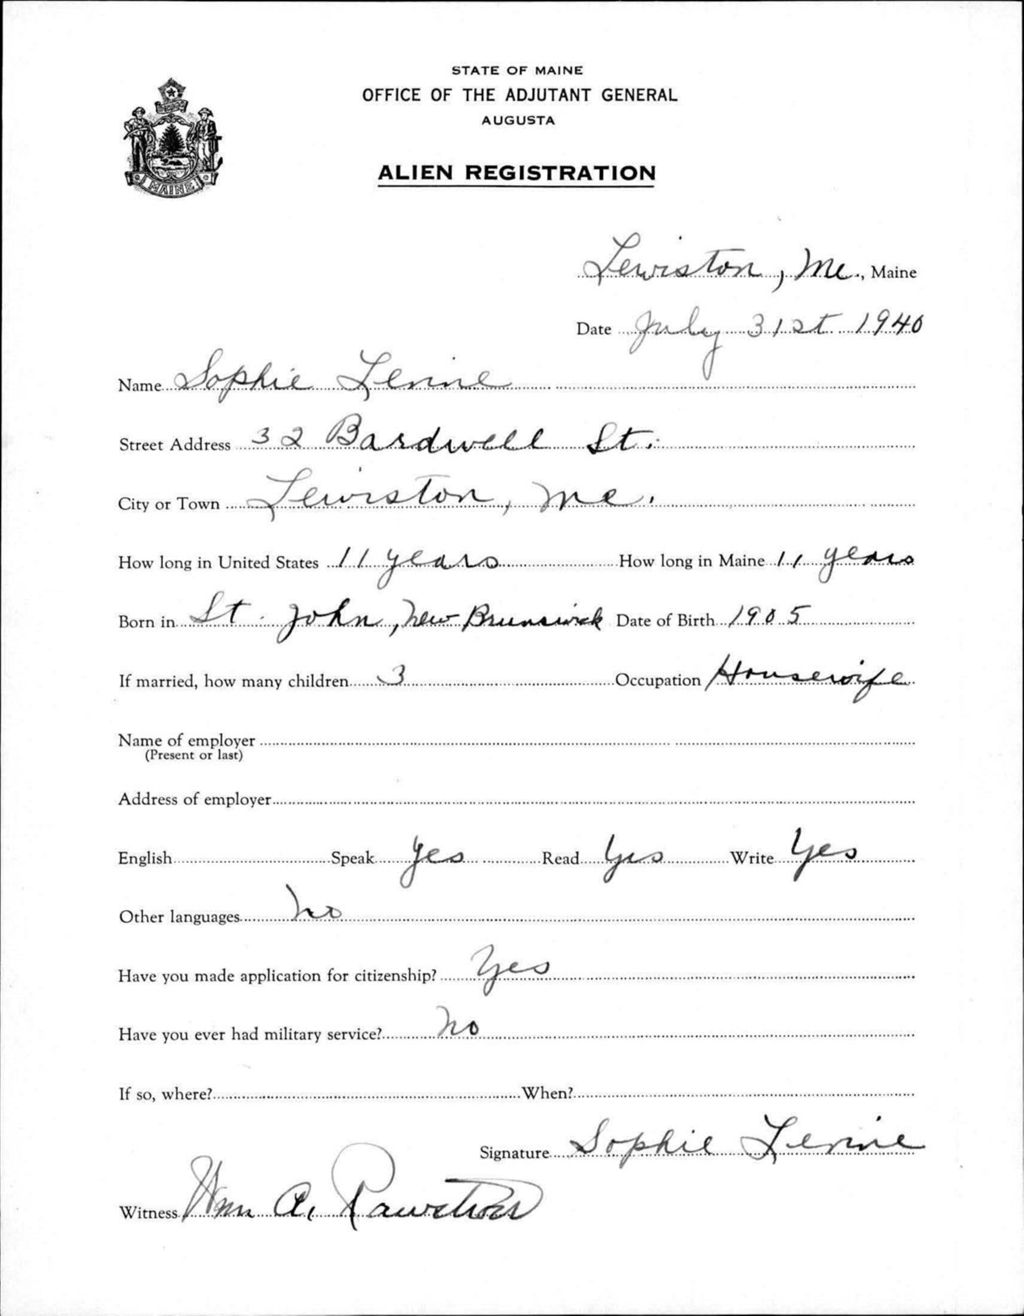 STATE OF MAINE
OFFICE OF THE ADJUTANT GENERAL
AUGUSTA
ALIEN REGISTRATION
MAINE
Lewiston, Me., Maine
Date July 31st 1940
Name Sophie Levine
Street Address 32 Bardwell St.
City or Town Lewiston, Me.
How long in United States 11 years How long in Maine 11 years
Born in St. John, New Brunswick Date of Birth 1905
If married, how many children 3 Occupation Housewife
Name of employer
(Present or last)
Address of employer
English Speak Yes Read Yes Write Yes
Other languages No
Have you made application for citizenship? Yes
Have you ever had military service? No
If so, where? When?
Signature Sophie Levine
Witness Wm A.